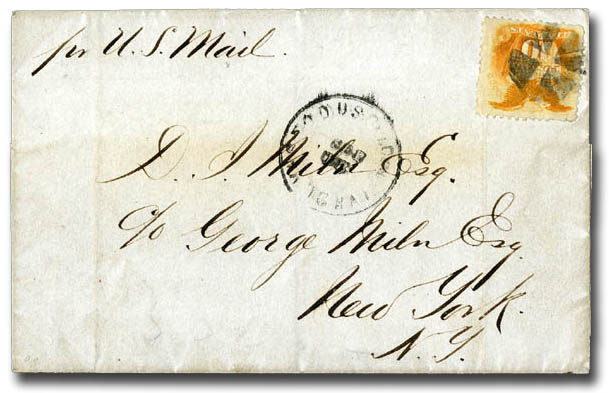 pr U.S. Mail.
D. J Miln Esq.
c/o George Miln Esq
New York.
N.Y.